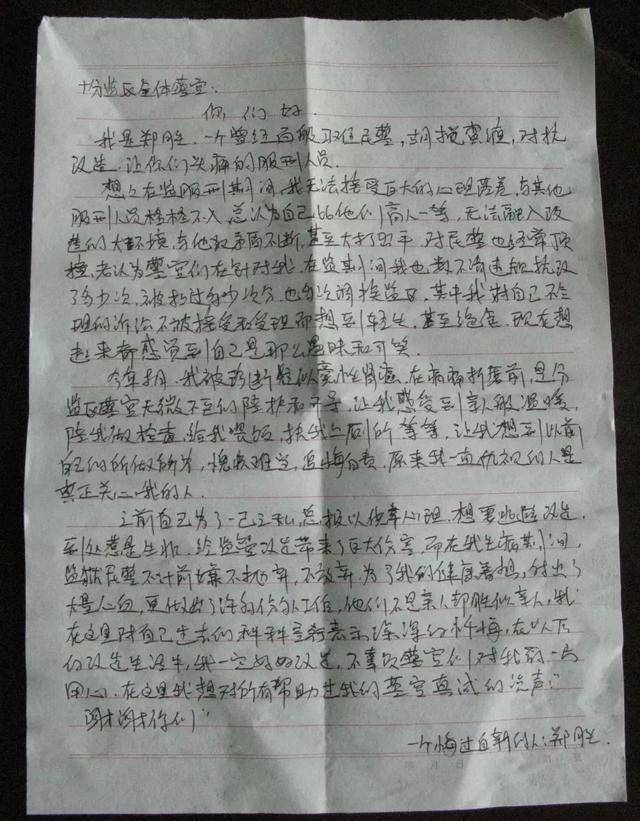 十分监区全体警官：
你们好。
我是郑胜。一个曾经百般取住民警，胡搅蛮缠，对抗
改造，让你们头痛的服刑人员。
想之在监服刑其间，我无法接受巨大的心理落差，与其他
服刑人员格格不入，总认为自己比他们高人一等，无法融入改
造的大环境，与他犯矛盾不断，甚至大打出手，对民警也经常顶
撞，老认为警官们在针对我，在监其间我也数不清违规抗改
了多少次，被扣过多少次分，也多次调换监区，其中我对自己不合
理的诉讼不被接受和受理而想到轻生，甚至绝食，现在想
起来都感觉到自己是那么愚昧和可笑。
今年 月，我被诊断疑似恶性肾癌，在病痛折磨前，是分
监区警官无微不至的陪护和开导，让我感受到亲人般温暖，
陪我做检查，给我喂饭，扶我上厕所等等，让我想到以前
自己的所做所为，愧疚难当，追悔自责，原来我一直仇视的人是
真正关心我的人。
之前自己为了一己之私，总报以侥幸心理，想要逃避改造，
到处惹是生非，给监管改造带来了巨大伤害，而在我生病其间，
监狱民警不计前嫌不抛弃，不放弃，为了我的健康着想，付出了
大量心血，更做出了许多份外工作，他们不是亲人却胜似亲人，我
在这里对自己过去的种种 表示深深的忏悔，在以下
的改造生活中，我一定好好改造，不辜负警官们对我的一片
用心，在这里我想对所有帮助过我们警官真诚的说声：
谢谢你们
一个悔过自新的人：郑胜